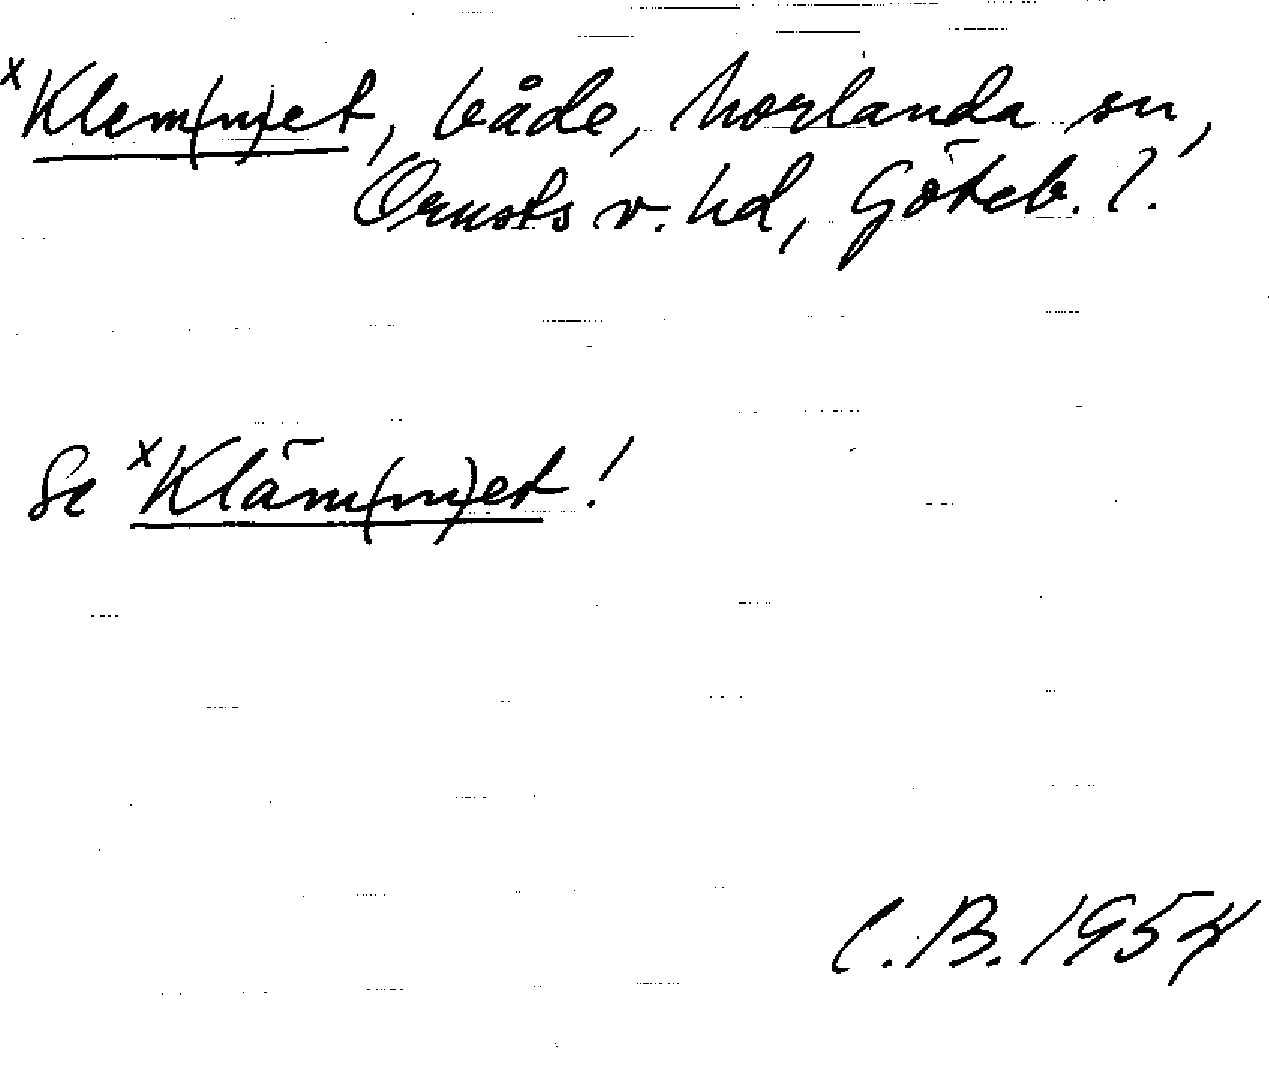 x Klem(m)et, både, Morlanda sn,
Orusts v. hd, Göteb. l.
Se x Kläm(m)et!
C.B. 1954